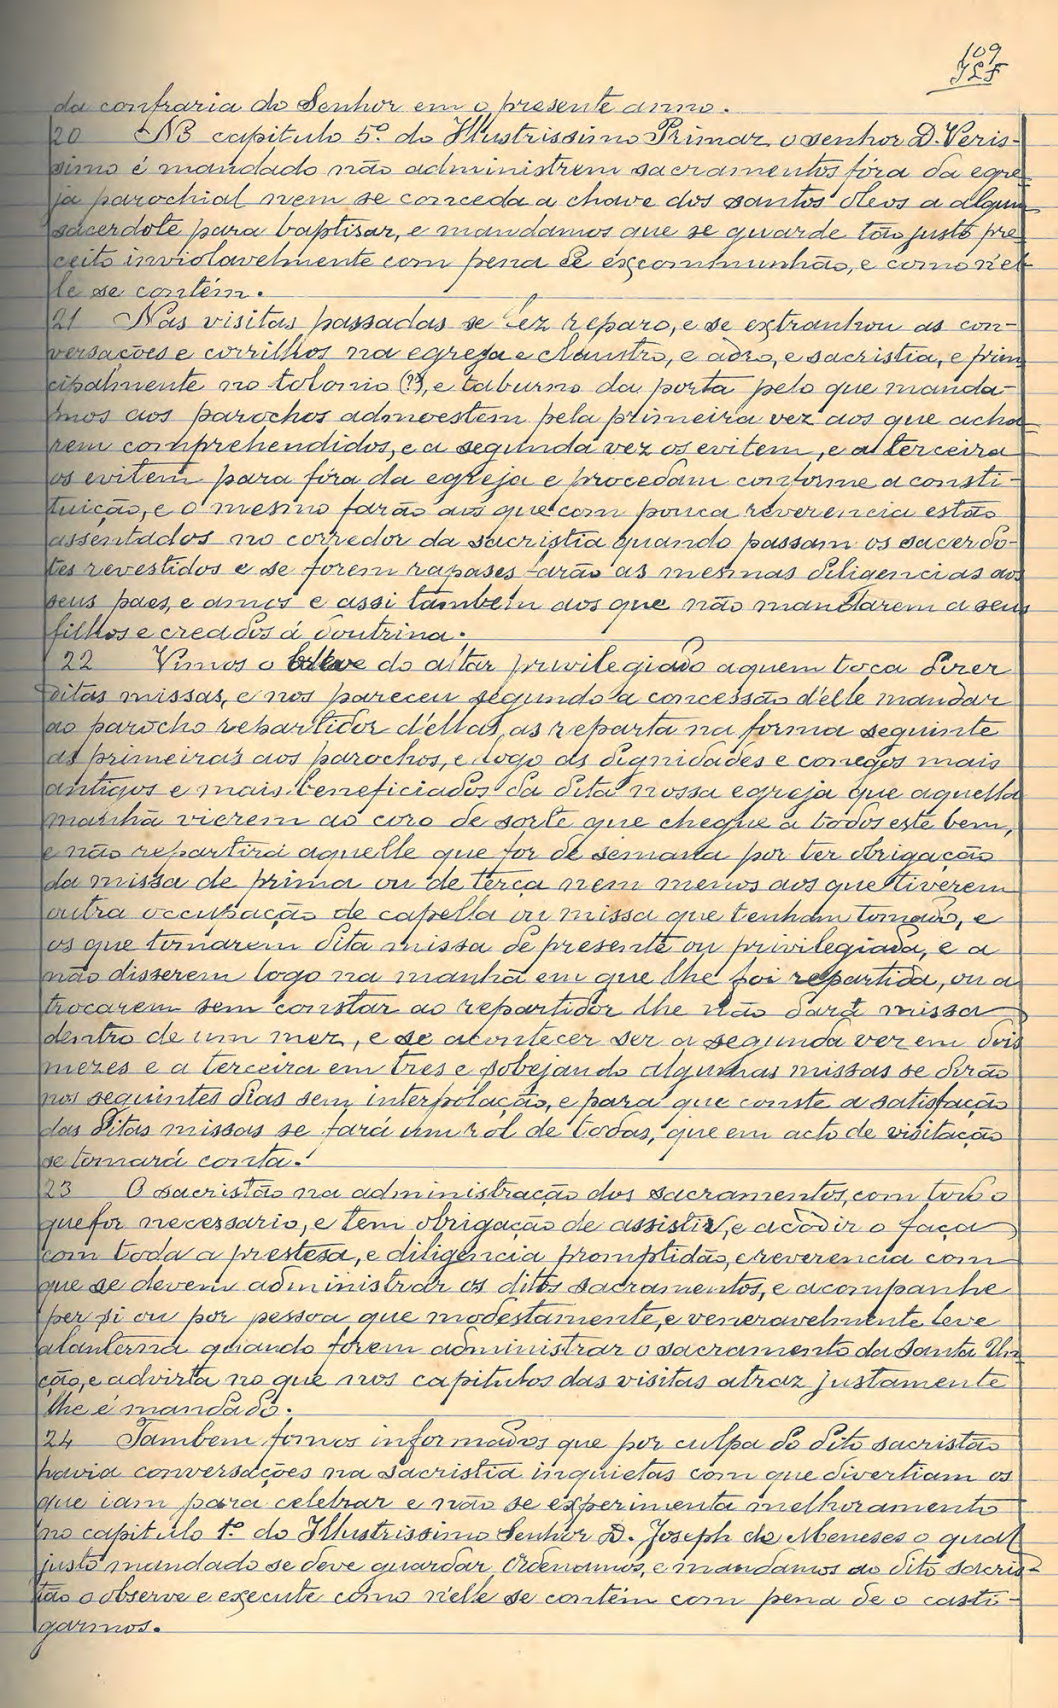 109
JLF
da confraria do Senhor em o presente anno.
20 NB capitulo 5º do Illustrissimo Primaz o senhor D. Veris-
simo é mandado não administrem sacramentos fóra da egre-
ja parochial nem se conceda a chave dos santos oleos a algum
sacerdote para baptisar, e mandamos que se guarde tão justo pre-
ceito inviolavelmente com pena de excommunhão, e como n'el-
le se contém.
21 Nas visitas passadas se fez reparo, e se extranhou as con-
versações e corrilhos na egreja e claustro, e adro, e sacristia, e prin
cipalmente no tolomio (??), e taburno da porta pelo que manda-
mos aos parochos admoestem pela primeira vez aos que acha-
rem comprehendidos, e a segunda vez os evitem, e a terceira
os evitem para fóra da egreja e procedam conforme a consti-
tuição, e o mesmo farão aos que com pouca reverencia estão
assentados no corredor da sacristia quando passam os sacerdo-
tes revestidos e se forem rapases farão as mesmas diligencias aos
seus paes, e amos e assi tambem aos que não mandarem a seus
filhos e creados á doutrina.
22 Vimos o breve do altar privilegiado aquem toca dizer
ditas missas, e nos pareceu segundo a concessão d'elle mandar
ao parocho repartidor d'ellas, as reparta na forma seguinte
as primeiras aos parochos, e logo as dignidades e conegos mais
antigos e mais beneficiados da dita nossa egreja que aquella
manhã vierem ao coro de sorte que chegue a todos este bem,
e não repartirá aquelle que for de semana por ter obrigação
da missa de prima ou de terça nem menos aos que tiverem
outra occupação de capella ou missa que tenham tomado, e
os que tomarem dita missa de presente ou privilegiada, e a
não disserem logo na manhã em que lhe foi repartida, ou a
trocarem sem constar ao repartidor lhe não dará missa
dentro de um mez, e se acontecer ser a segunda vez em dois
mezes e a terceira em tres e sobejando algumas missas se dirão
nos seguintes dias sem interpolação, e para que conste a satisfação
das ditas missas se fará um rol de todas, que em acto de visitação
se tomará conta.
23 O sacristão na administração dos sacramentos, com todo o
que for necessario, e tem obrigação de assistir, e acodir o faça
com toda a prestesa, e diligencia promptidão, e reverencia com
que se devem administrar os ditos sacramentos, e acompanhe
per si ou por pessoa que modestamente, e veneravelmente leve
alanterna quando forem administrar o sacramento da Santa Un
ção, e advirta no que nos capitulos das visitas atraz justamente
lhe é mandado.
24 Tambem fomos informados que por culpa do dito sacristão
havia conversações na sacristia inquietas com que divertiam os
que iam para celebrar e não se experimenta melhoramento
no capitulo 1º do Illustrissimo Senhor D. Joseph de Meneses o qual
justo mandado se deve guardar. Ordenamos, e mandamos ao dito sacris-
tão o observe e execute como n'elle se contém com pena de o casti-
garmos.